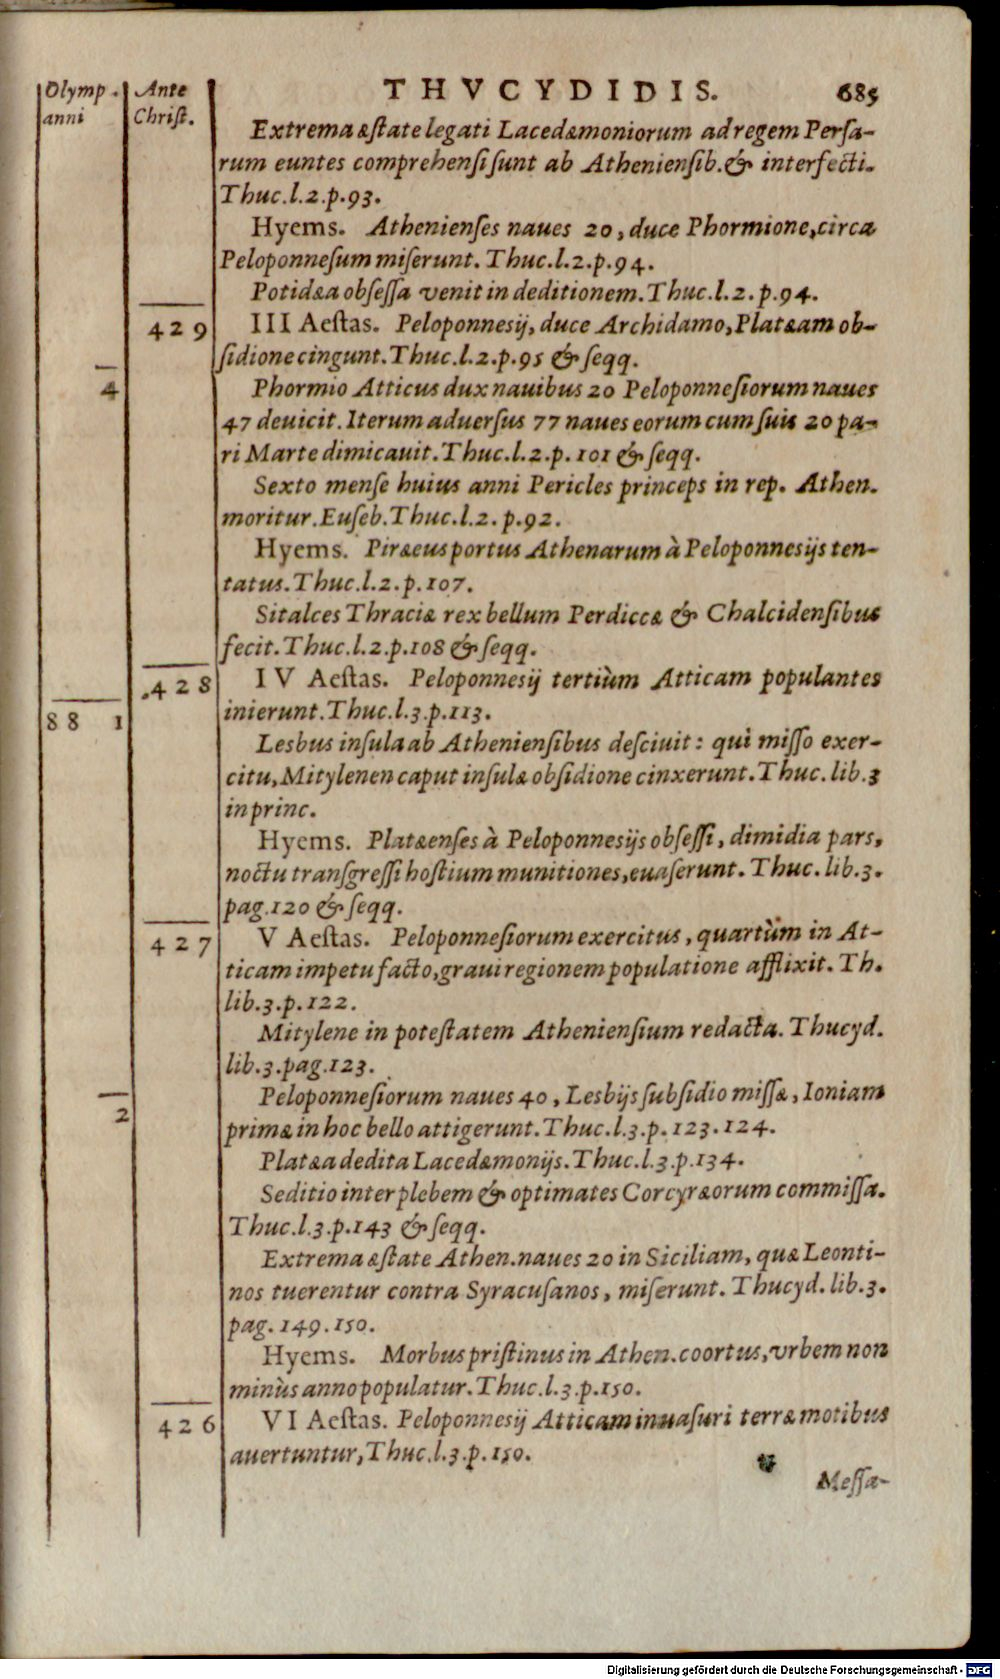 Olymp. anni
Ante Christ.
THVCYDIDIS. 685
Extrema æstate legati Lacedæmoniorum ad regem Persa-
rum euntes comprehensi sunt ab Atheniensib. & interfecti.
Thuc.l.2.p.93.
Hyems. Athenienses naues 20, duce Phormione, circa
Peloponnesum miserunt. Thuc.l.2.p.94.
Potidæa obsessa venit in deditionem. Thuc.l.2.p.94.
429 III Aestas. Peloponnesij, duce Archidamo, Platæam ob-
sidione cingunt. Thuc.l.2.p.95 & seqq.
4 Phormio Atticus dux nauibus 20 Peloponnesiorum naues
47 deuicit. Iterum aduersus 77 naues eorum cum suis 20 pa-
ri Marte dimicauit. Thuc.l.2.p.101 & seqq.
Sexto mense huius anni Pericles princeps in rep. Athen.
moritur. Euseb. Thuc.l.2.p.92.
Hyems. Piræeus portus Athenarum à Peloponnesijs ten-
tatus. Thuc.l.2.p.107.
Sitalces Thraciæ rex bellum Perdiccæ & Chalcidensibus
fecit. Thuc.l.2.p.108 & seqq.
.428 IV Aestas. Peloponnesij tertiùm Atticam populantes
88 1 inierunt. Thuc.l.3.p.113.
Lesbus insula ab Atheniensibus desciuit: qui misso exer-
citu, Mitylenen caput insulæ obsidione cinxerunt. Thuc. lib.3
in princ.
Hyems. Platæenses à Peloponnesijs obsessi, dimidia pars,
noctu transgressi hostium munitiones, euaserunt. Thuc. lib.3.
pag.120 & seqq.
427 V Aestas. Peloponnesiorum exercitus, quartùm in At-
ticam impetu facto, graui regionem populatione afflixit. Th.
lib.3.p.122.
Mitylene in potestatem Atheniensium redacta. Thucyd.
lib.3.pag.123.
2 Peloponnesiorum naues 40, Lesbijs subsidio missæ, Ioniam
primæ in hoc bello attigerunt. Thuc.l.3.p.123.124.
Platæa dedita Lacedæmonijs. Thuc.l.3.p.134.
Seditio inter plebem & optimates Corcyræorum commissa.
Thuc.l.3.p.143 & seqq.
Extrema æstate Athen. naues 20 in Siciliam, quæ Leonti-
nos tuerentur contra Syracusanos, miserunt. Thucyd. lib.3.
pag. 149.150.
Hyems. Morbus pristinus in Athen. coortus, vrbem non
minùs anno populatur. Thuc.l.3.p.150.
426 VI Aestas. Peloponnesij Atticam inuasuri terræ motibus
auertuntur, Thuc.l.3.p.150.
Messa-
Digitalisierung gefördert durch die Deutsche Forschungsgemeinschaft - DFG